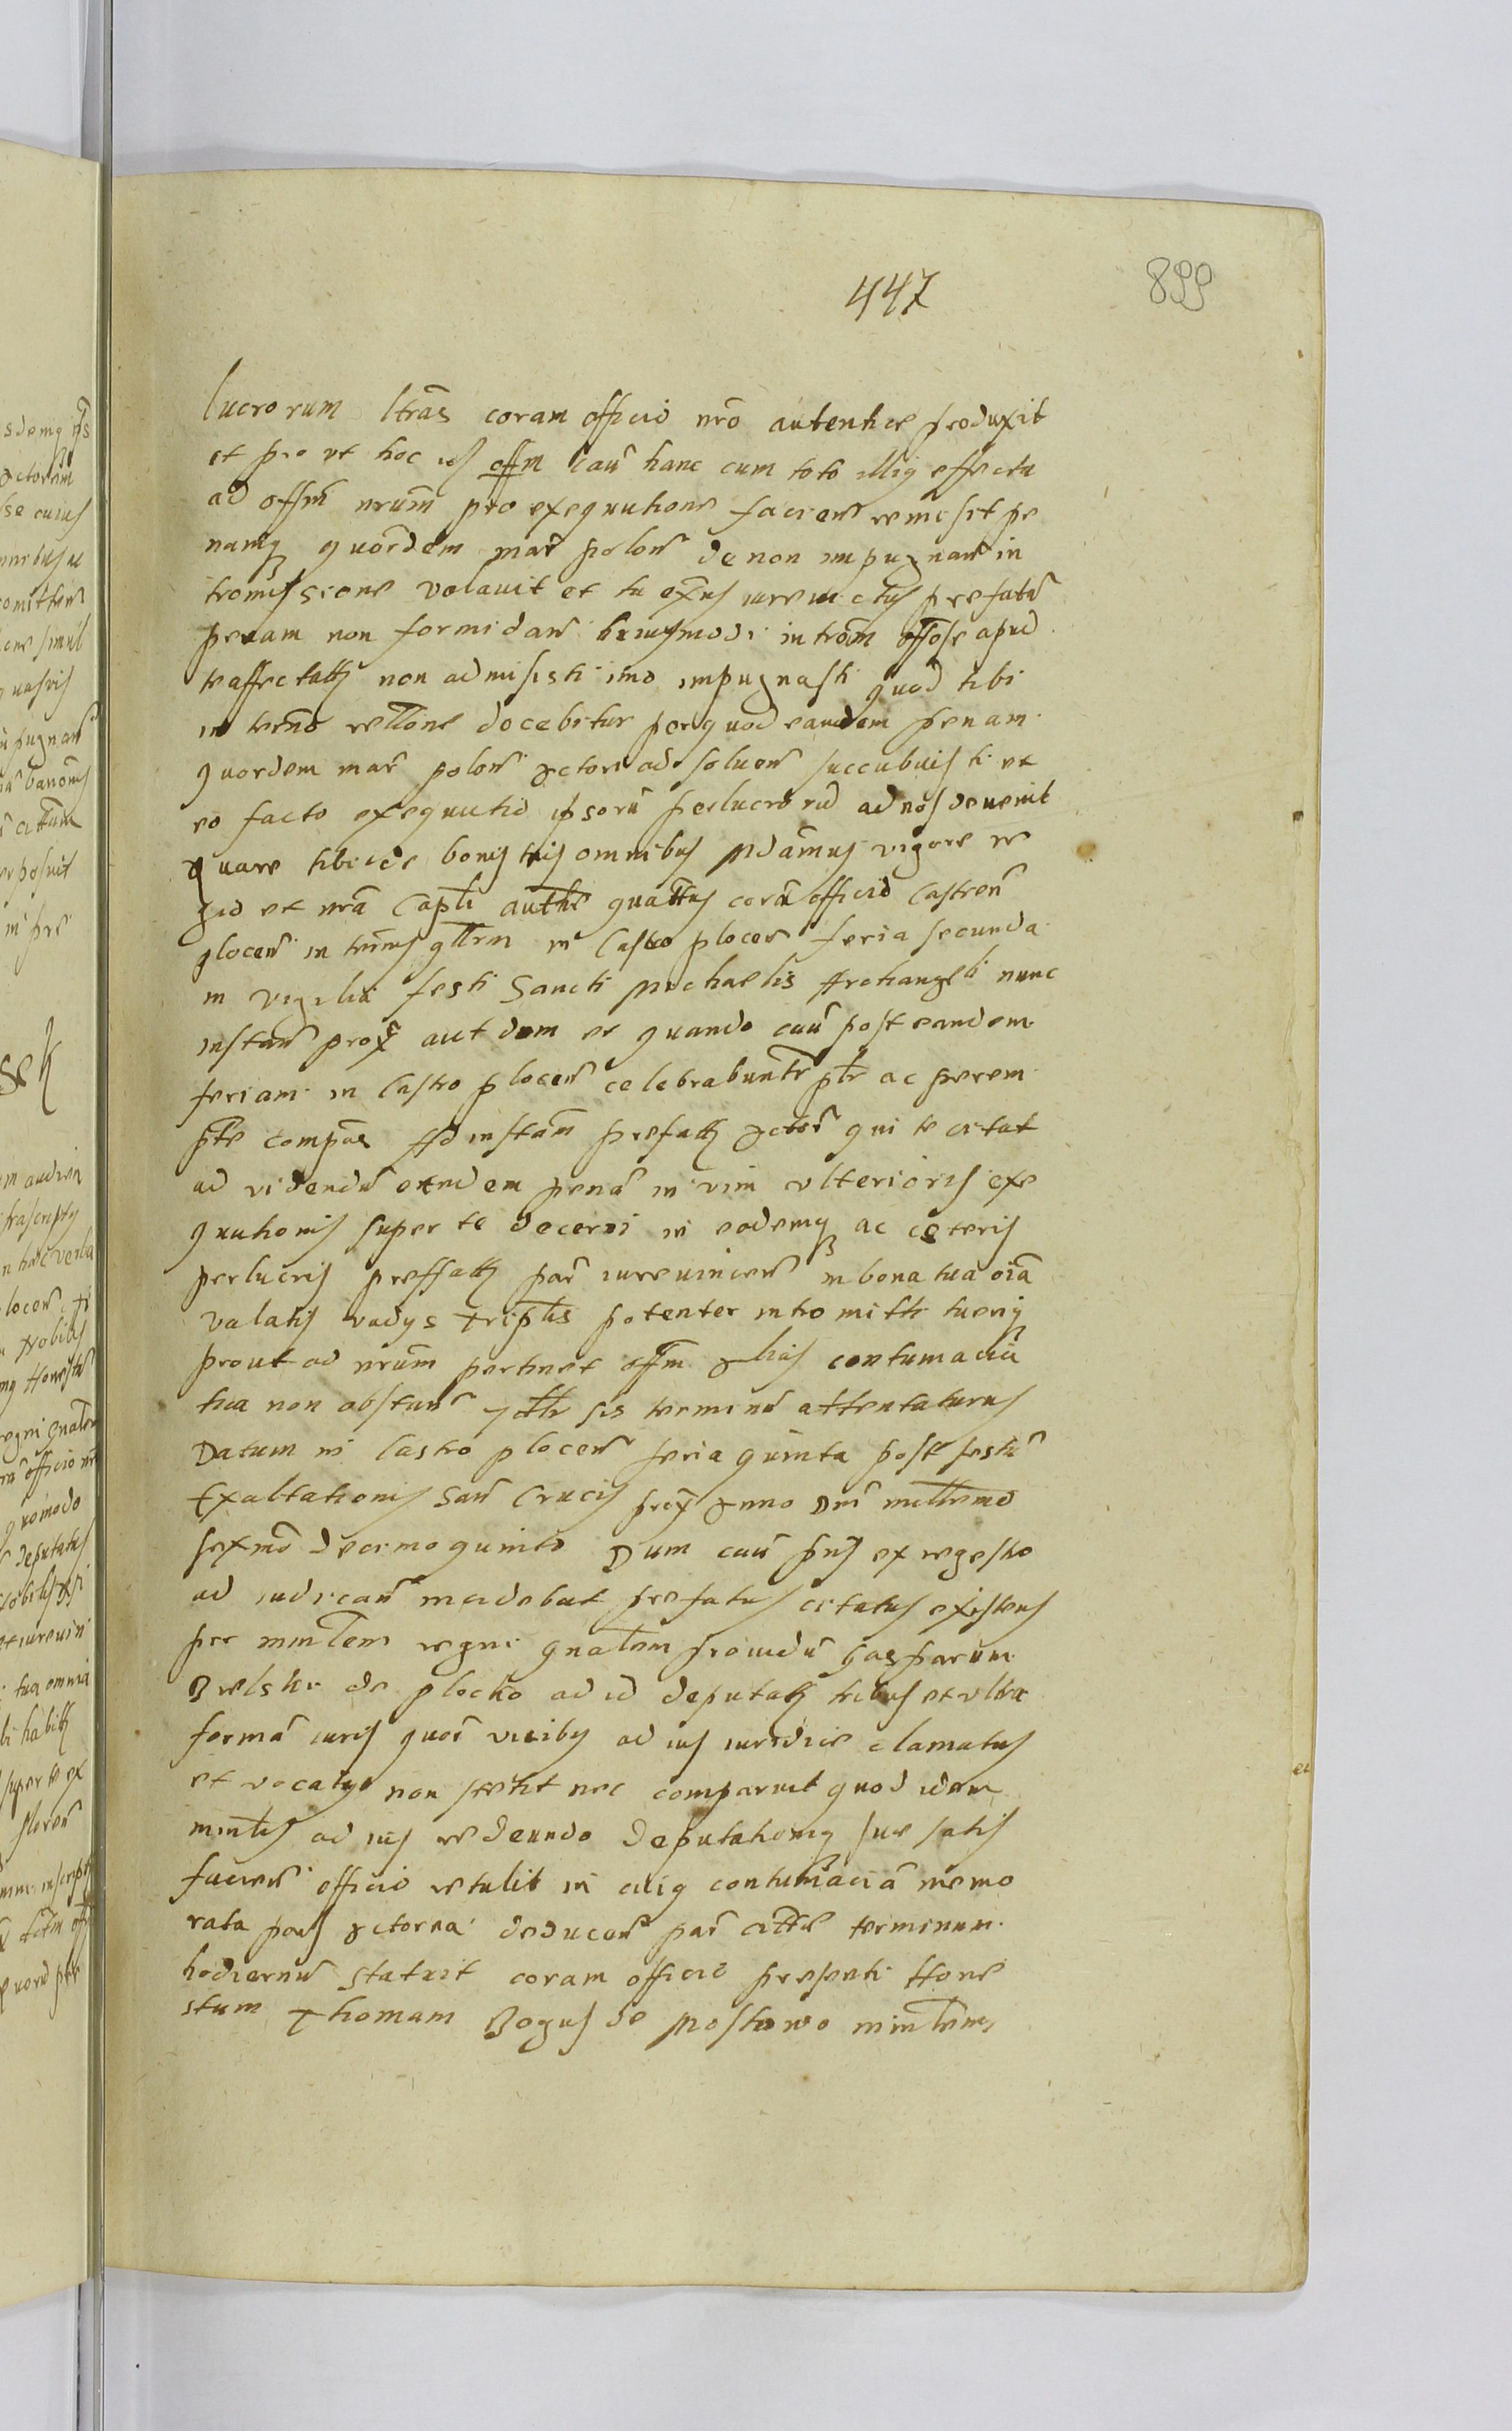 447
899
lucrorum lr̃as coram officio nr̃o autentice produxit
et pro ut hoc id offm̃ cau͂ hanc cum toto illiq effectu
ad offm̃ nr̃um pro exequutione facien͂ remisit pe
namq quordem mar͂ polon͂ de non impugnan͂ in
tromissione valavit et tu exn͂s iurevictus prefatã
penam non formidan͂ huiusmodi introm̃ offose apud
te affectatʒ non admisisti imo impugnasti quod tibi
in term̃o rellone docebitur per quod eandem penam
quordem mar͂ polon͂ actori ad soluen͂ succubuisti et
eo facto exequutio ipsoru͂ perlucroru͂ ad nos devenit
quare tibi de bonis tuis omnibus mdãmus vigore re
gio et nr̃a capt͂i auth̃e quattus cora͂ officio castren͂
plocen͂ in term͂is qllrm in castro plocen͂ feria secunda
in vigilia festi Sancti Michaelis Archangeli nunc
instan͂ prox͂ aut dum et quando cau͂ post eandem
feriam in castro plocen͂ celebrabuntr͂ pt͂r ac perem
pt͂e compãs Ad instam͂ prefatʒ actor͂ qui te citat
ad videndu͂ eandem pena͂ in vim ulterioris exe
quutionis super te decerni in eodemq ac ceteris
perlucris preffatʒ par͂ iurevincen͂ in bona tua oi͂a
valatis vadys triplis potenter intromitti tueriq
prout ad nr̃um pertinet offm̃ alias contumacia
tua non obstan͂ ytt͂r sis terminu͂ attentaturus
Datum in castro plocen͂ feria quinta post festu͂
Exaltationis San͂ Crucis prox͂ Anno Dni͂ millemo
sexmo͂ decimoquinto Dum cau͂ pn͂s ex regestro
ad iudican͂ incidebat prefatus citatus existens
per minl͂em regni gnal͂em providu͂ Gasparum
Bielski de plocko ad id deputatʒ tribus et ultra
forma͂ iuris quor͂ vicibʒ ad ius iuridice clamatus
et vocatus non stetit nec comparuit quod idem
minl͂is ad ius redeundo deputationiq sue satis
facien͂ officio retulit in cuiq contumacia͂ memo
rata pars actorea deducen͂ par͂ citt͂e terminum
hodiernu͂ statuit coram officio presenti Hone
stum Thomam Bogus de Mostowo minl͂em